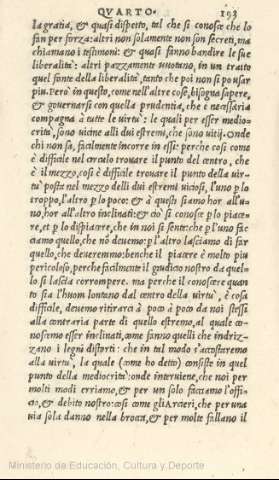 QVARTO. 193
la gratia, & quasi dispetto, tal che si conosce che lo
fan per forza: altri non solamente non son secreti, ma
chiamano i testimoni: & quasi fanno bandire le sue
liberalità: altri pazzamente vuotano, in un tratto
quel fonte della liberalità, tanto che poi non si po usar
piu. Però in questo, come nell'altre cose, bisogna sapere,
& gouernarsi con quella prudentia, che è necessaria
compagna à tutte le uirtù: le quali per esser medio=
crità, sono uicine alli dui estremi, che sono uitij. Onde
chi non sa, facilmente incorre in essi: perche così come
è difficile nel circulo trouare il punto del centro, che
è il mezzo, così è difficile trouare il punto della uir=
tù posta nel mezzo delli dui estremi uiciosi, l'uno p lo
troppo, l'altro p lo poco: & à questi siamo hor all'u=
no, hor all'altro inclinati: & ciò si conosce p lo piace=
re, et p lo dispiacere, che in noi si sente: che p l'uno fac=
ciamo quello, che nõ deuemo: p l'altro lasciamo di far
quello, che deueremmo: benche il piacere è molto piu
pericoloso, perche facilmente il giudicio nostro da quel=
lo si lascia corrompere. ma perche il conoscere quan
to sia l'huom lontano dal centro della uirtù, è cosa
difficile, deuemo ritirarci à poco à poco da noi stessi
alla contraria parte di quello estremo, al quale co=
noscemo esser inclinati, come fanno quelli che indriz=
zano i legni distorti: che in tal modo s'accostaremo
alla uirtù, la quale (come ho detto) consiste in quel
punto della mediocrità: onde interuiene, che noi per
molti modi erriamo, & per un solo facciamo l'offi=
cio, & debito nostro: così come gli Arcieri, che per una
uia sola danno nella brocca, & per molte fallano il
Ministerio de Educación, Cultura y Deporte